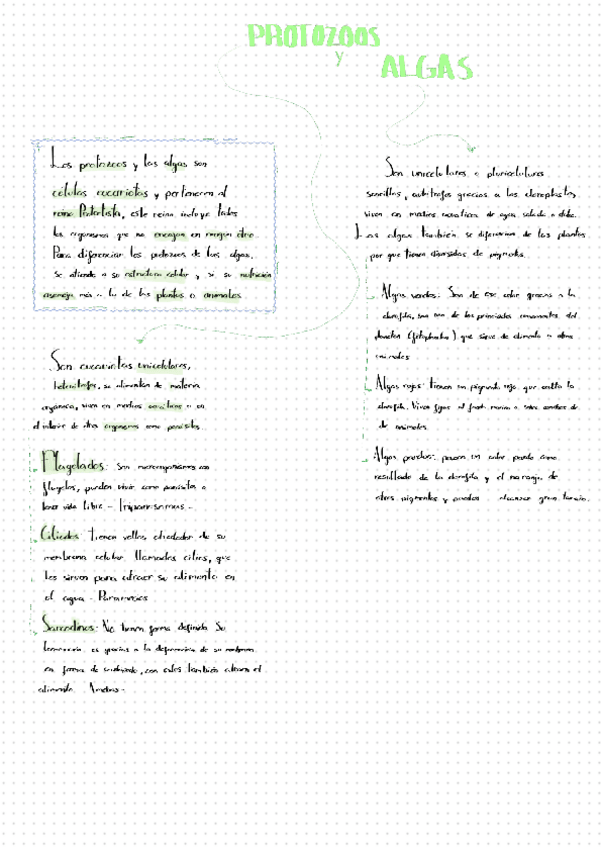 PROTOZOOS
Y
ALGAS
Los protozoos y las algas son
células eucariotas y pertenecen al
reino Protoctista, este reino incluye todos
los organismos que no encajan en ningún otro.
Para diferenciar los protozoos de las algas,
se atiende a su estructura celular y si su nutrición
asemeja más a la de las plantas o animales.
Son eucariotas unicelulares,
heterótrofos, se alimentan de materia
orgánica, viven en medios acuáticos o en
el interior de otros organismos como parásitos.
Flagelados: Son microorganismos con
flagelos, pueden vivir como parásitos o
tener vida libre -
Ciliados: tienen vellos alrededor de su
membrana celular llamados cilios, que
les sirven para atraer su alimento en
el agua - Paramecios
Sarcodinos: No tienen forma definida. Su
es gracias a la deformación de su
en forma de, con ellos también atraen el
alimento. Amebas -
Son unicelulares o pluricelulares
sencillos, autótrofos gracias a los cloroplastos,
viven en medios acuáticos de agua salada o dulce.
Las algas también se diferencian de las plantas
por que tienen diversidad de pigmentos.
Algas verdes: Son de ese color gracias a la
clorofila, son uno de los principales componentes del
plancton (fitoplancton) que sirve de alimento a otros
animales
Algas rojas: tienen un pigmento rojo que oculta la
clorofila. Viven fijas al fondo marino o sobre
de animales.
Algas pardas: poseen un color pardo como
resultado de la clorofila y el naranja de
otros pigmentos y pueden alcanzar gran tamaño.